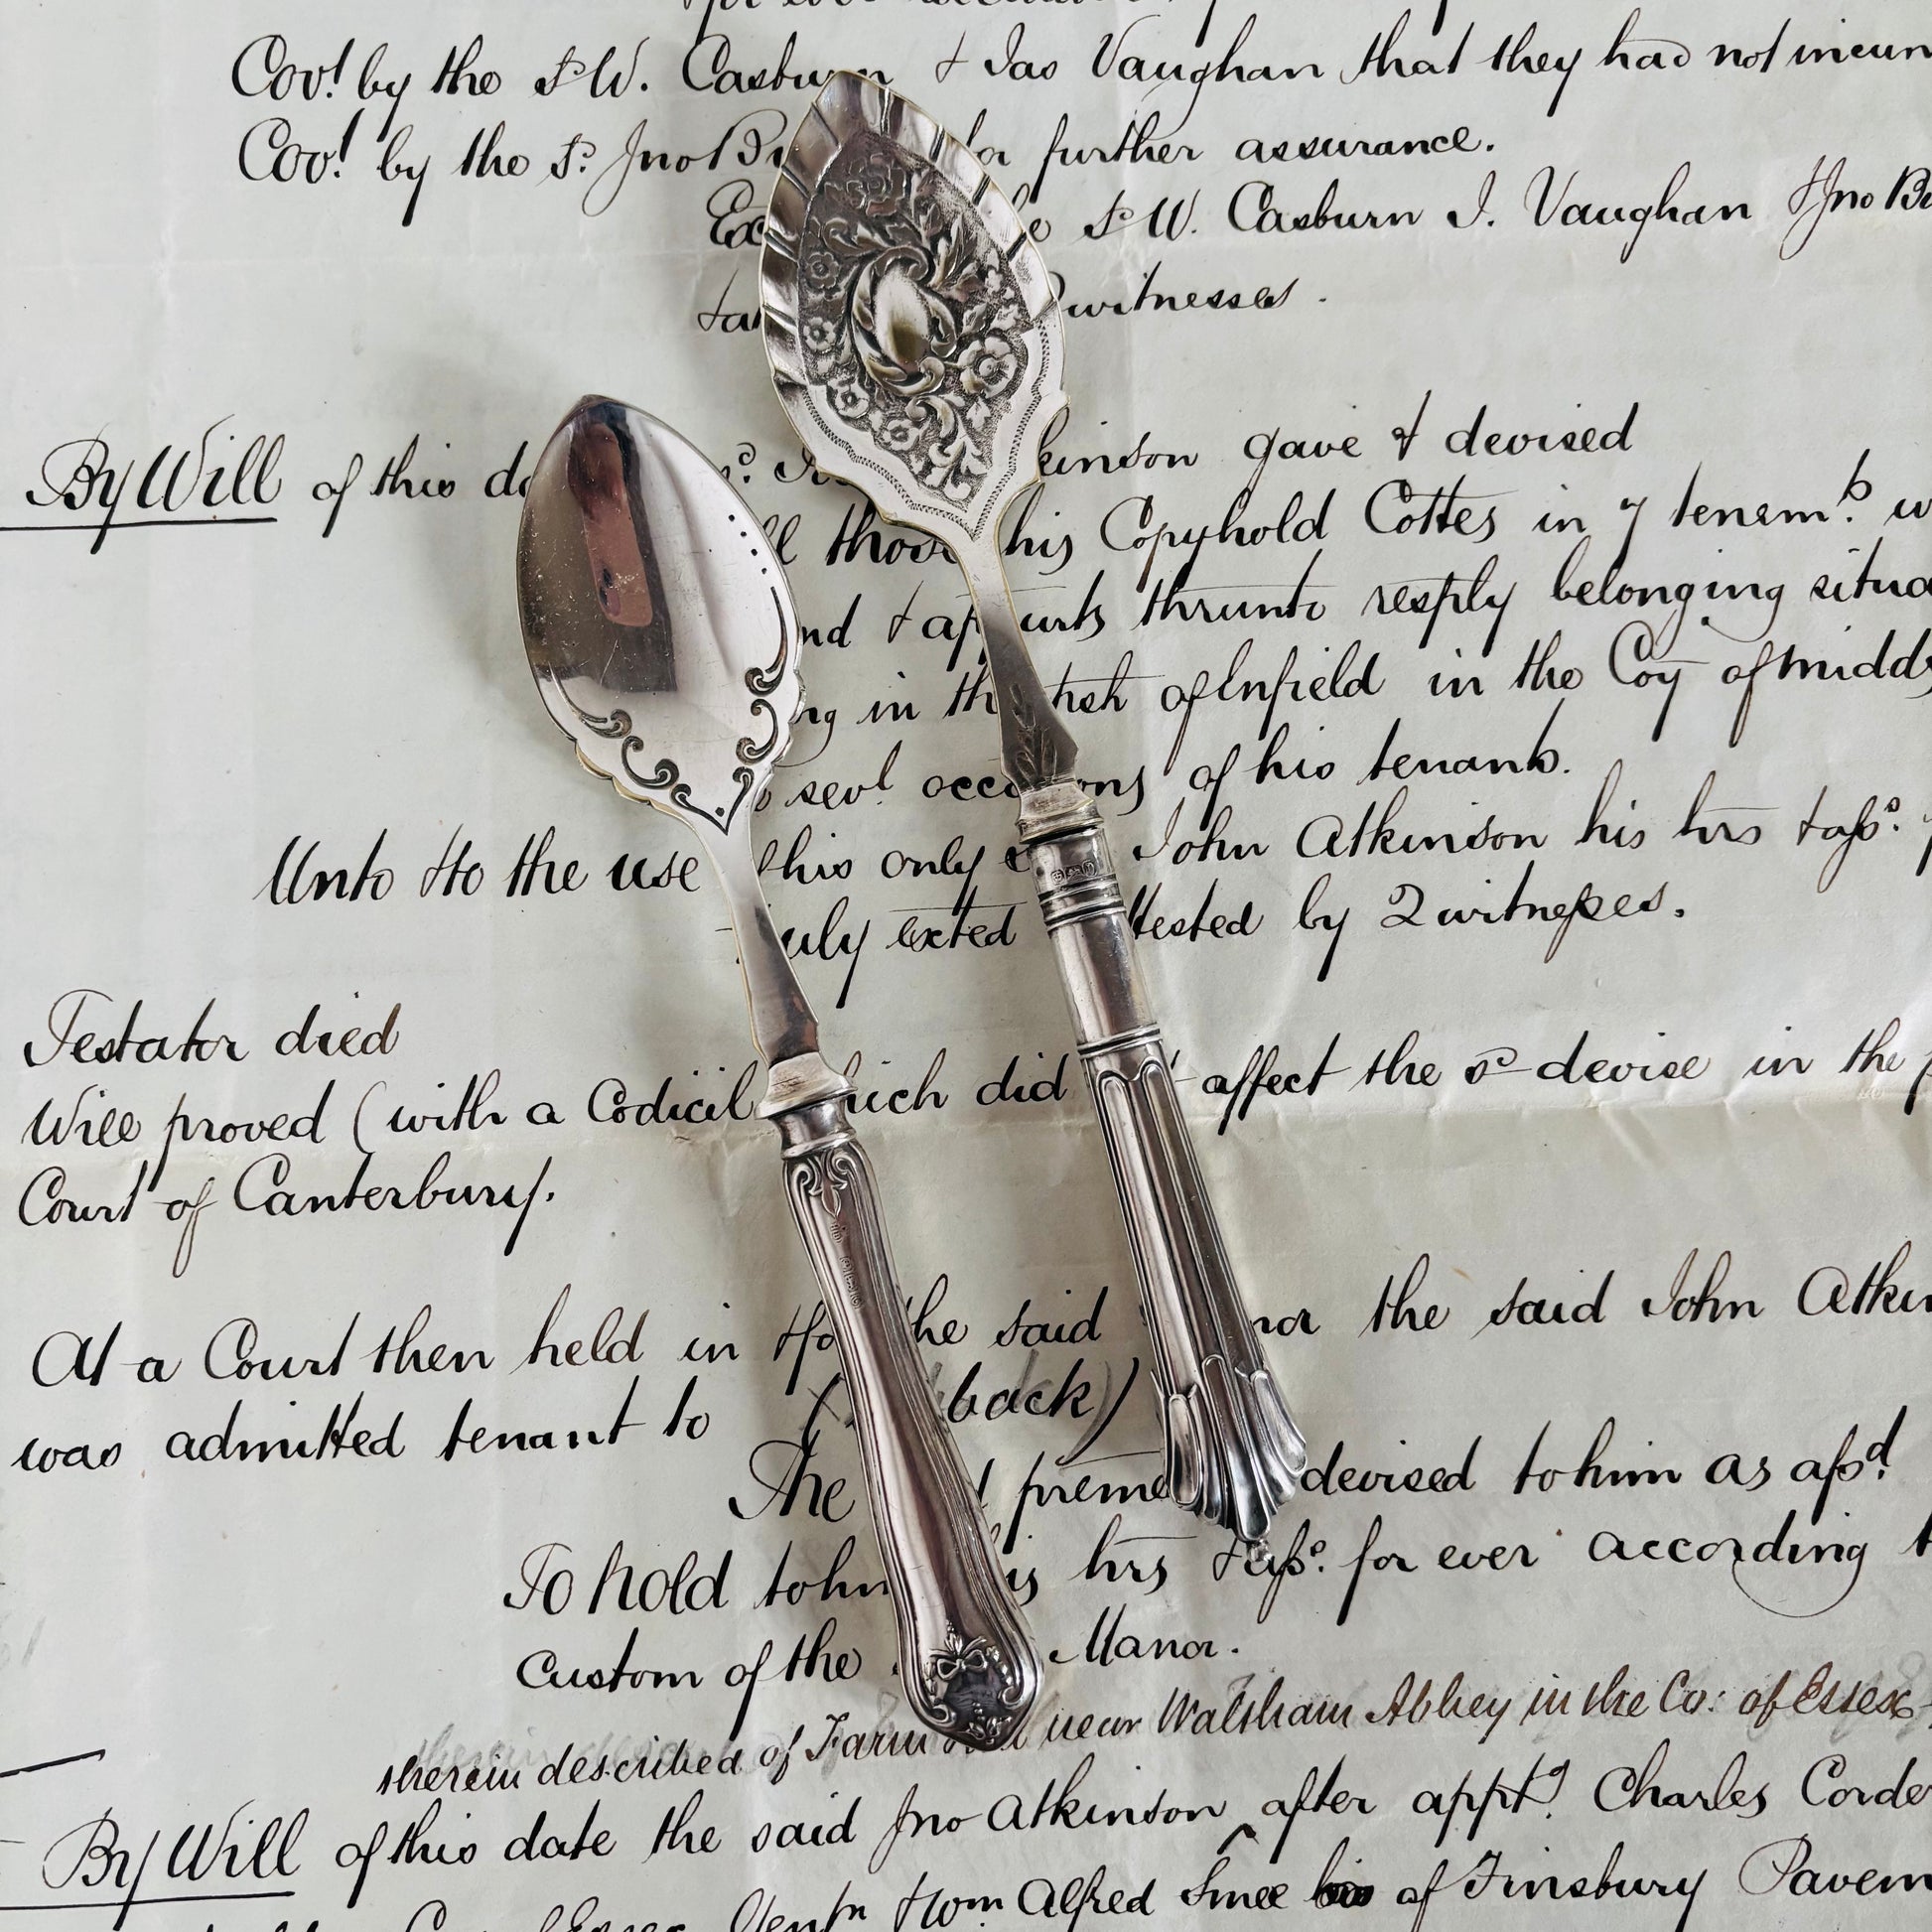 Covt. by the sd. W. Casburn & Jas Vaughan that they had not incum
Covt. by the sd. Jno for further assurance.
sd. W. Casburn J. Vaughan & Jno
witnesses.
By Will of this gave & devised
those his Copyhold Cottes in 7 tenemts.
& thrunto resply belonging
in the of Enfield in the Coy of Midd
sevl. of his tenants.
Unto & to the use his only John Atkinson his hrs & ass.
exted by 2 witnesses.
Testator died
Will proved (with a Codicil which did affect the sd devise in the
Court of Canterbury.
At a Court then held in the said the said John Atkin
was admitted tenant to ( back)
The devised to him as afsd.
To hold to him hrs & ass. for ever according
custom of the Manor.
therein described of Farm near Waltham Abbey in the Co: of Essex
By Will of this date the said Jno Atkinson after apptg. Charles Corde
Gentn & Wm Alfred Smee of Finsbury Pavem